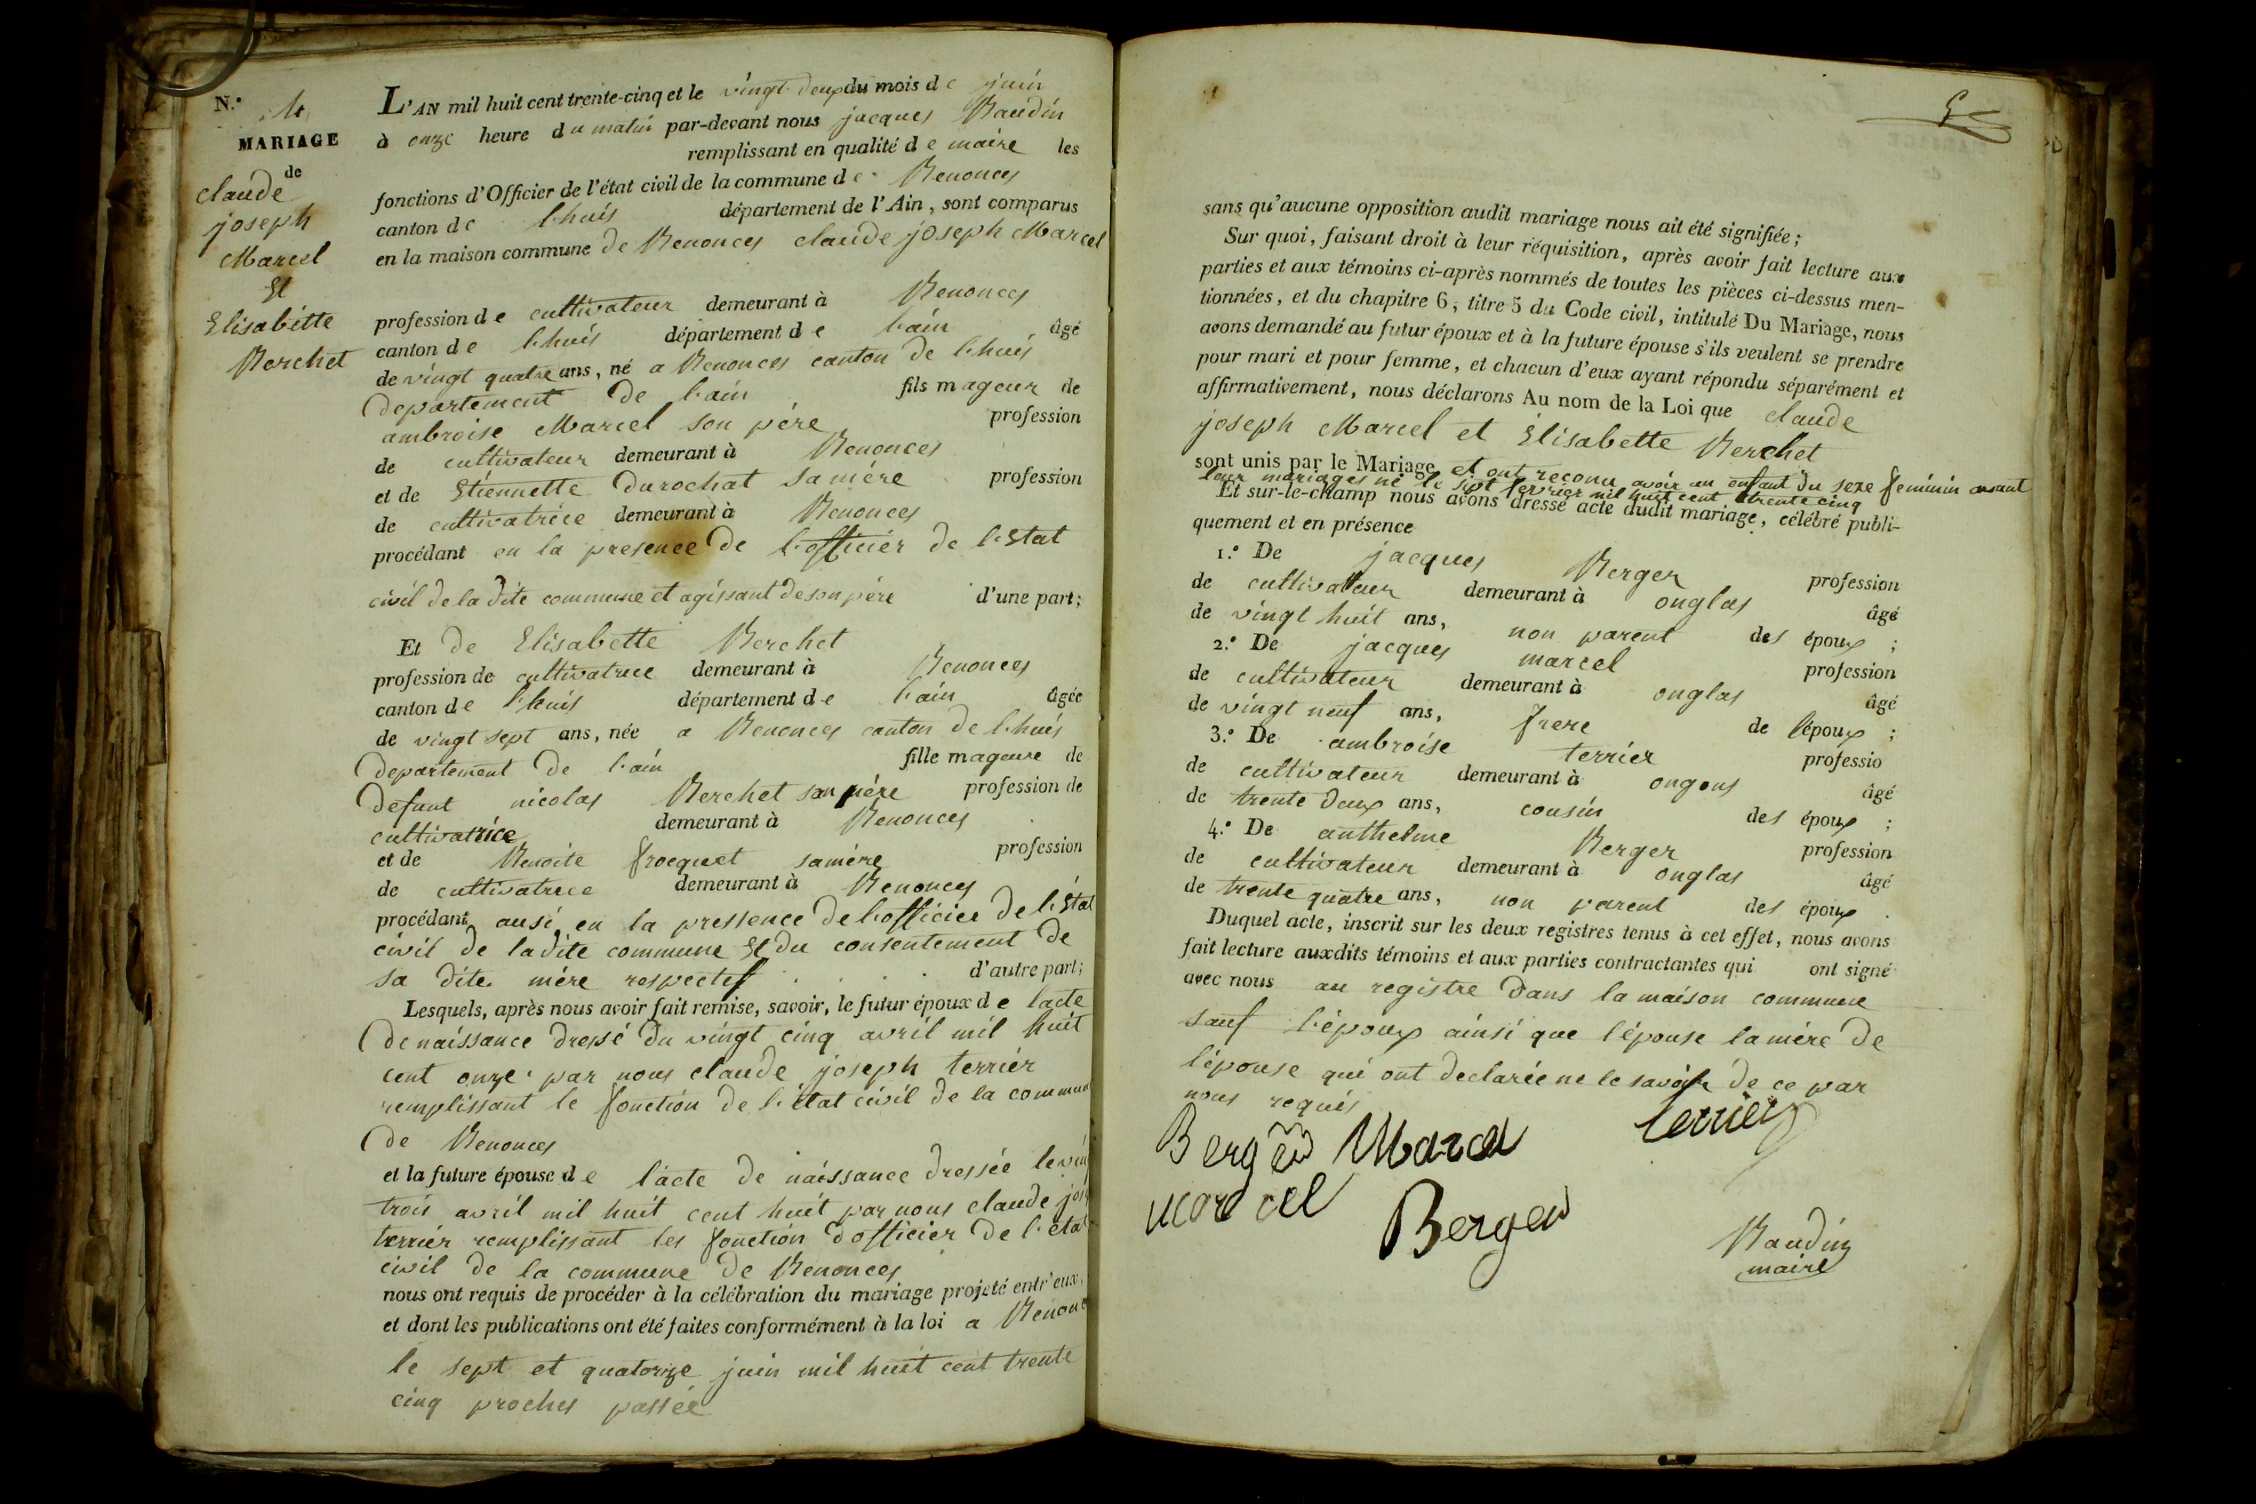 N.° 4
MARIAGE
de
claude
joseph
Marcel
Et
Elisabette
Berchet
L'AN mil huit cent trente-cinq et le vingt deux du mois de juin
à onze heure du matin par-devant nous jacques Baudin
remplissant en qualité de maire les
fonctions d'Officier de l'état civil de la commune de Benonces
canton de lhuis département de l'Ain, sont comparus
en la maison commune de Benonces claude joseph Marcel
profession de cultivateur demeurant à Benonces
canton de lhuis département de lain âgé
de vingt quatre ans, né a Benonces canton de lhuis
departement de lain fils mageur de
ambroise Marcel son père profession
de cultivateur demeurant à Benonces
et de Etiennette Durochat sa mère profession
de cultivatrice demeurant à Benonces
procédant en la presence de lofficier de lEtat
civil de la dite commune et agissant de son père d'une part;
Et de Elisabette Berchet
profession de cultivatrice demeurant à Benonces
canton de lhuis département de lain âgée
de vingt sept ans, née a Benonces canton de lhuis
departement de lain fille mageure de
defunt nicolas Berchet son père profession de
cultivatrice demeurant à Benonces
et de Benoite frocquet sa mère profession
de cultivatrice demeurant à Benonces
procédant ausi en la pressence de lofficier de lEtat
civil de ladite commune Et du consentement de
sa dite mère respectif d'autre part;
Lesquels, après nous avoir fait remise, savoir, le futur époux de lacte
de naissance dressé du vingt cinq avril mil huit
cent onze par nous claude joseph terrier
remplissant le fonction de l'état civil de la commune
de Benonces
et la future épouse de l'acte de naissance dressée le
trois avril mil huit cent huit par nous claude
terrier remplissant les fonction dofficier de l'état
civil de la commune de Benonces
nous ont requis de procéder à la célébration du mariage projeté entr'eux,
et dont les publications ont été faites conformément à la loi a
le sept et quatorze juin mil huit cent trente
cinq proches passée
sans qu'aucune opposition audit mariage nous ait été signifiée;
Sur quoi, faisant droit à leur réquisition, après avoir fait lecture aux
parties et aux témoins ci-après nommés de toutes les pièces ci-dessus men-
tionnées, et du chapitre 6, titre 5 du Code civil, intitulé Du Mariage, nous
avons demandé au futur époux et à la future épouse s'ils veulent se prendre
pour mari et pour femme, et chacun d'eux ayant répondu séparément et
affirmativement, nous déclarons Au nom de la Loi que claude
joseph Marcel et Elisabette Berchet
sont unis par le Mariage et ont reconu avoir un enfant du sexe feminin avant
leur mariages né le sept fevrier mil huit cent trente cinq
Et sur-le-champ nous avons dressé acte dudit mariage, célébré publi-
quement et en présence
1.° De jacques Berger profession
de cultivateur demeurant à onglas âgé
de vingt huit ans, non parent des époux ;
2.° De jacques marcel profession
de cultivateur demeurant à onglas âgé
de vingt neuf ans, frere de lépoux ;
3.° De ambroise terrier professio
de cultivateur demeurant à ongons âgé
de trente deux ans, cousin des époux ;
4.° De anthelme Berger profession
de cultivateur demeurant à onglas âgé
de trente quatre ans, non parent des époux .
Duquel acte, inscrit sur les deux registres tenus à cet effet, nous avons
fait lecture auxdits témoins et aux parties contractantes qui ont signé
avec nous au registre dans la maison commune
sauf lépoux ainsi que l'épouse la mère de
l'épouse qui ont declarée ne le savoir de ce par
nous requis
Berger Marcel terrier
marcel
Berger
Baudin
maire